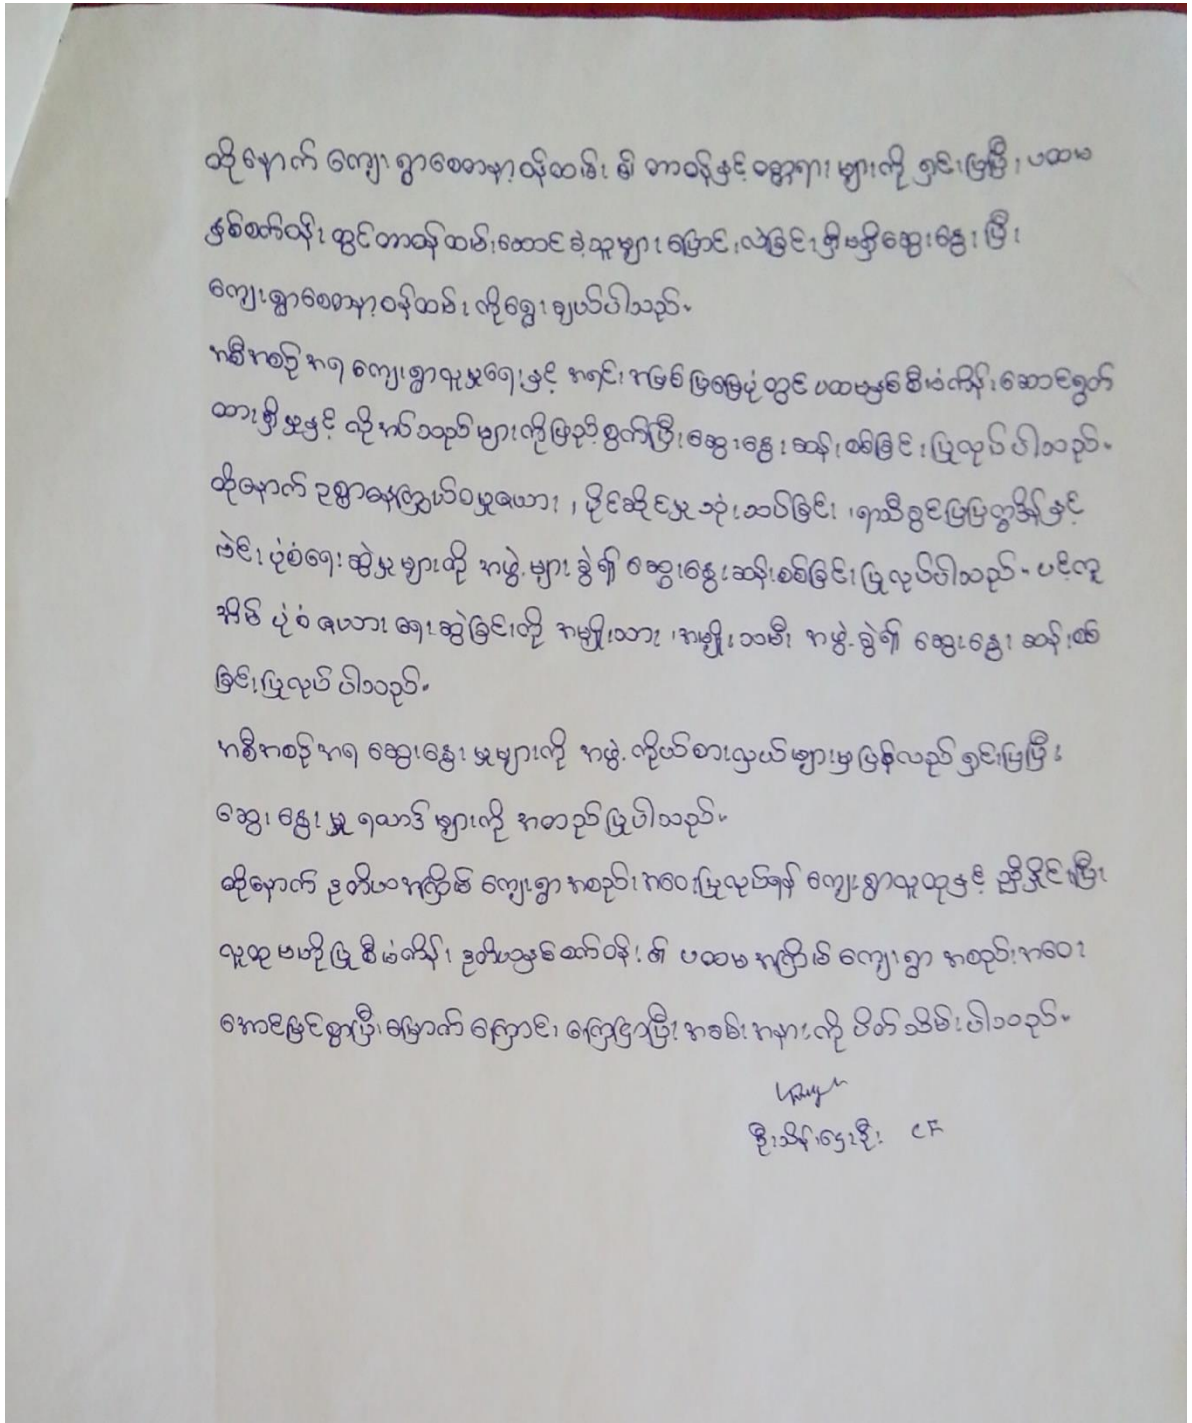 ထို့နောက် ကျေးရွာစေတနာ့ဝန်ထမ်း ၏ တာဝန်နှင့် ဝတ္တရား များကို ရှင်းပြပြီး ပထမ
နှစ်စက်ဝန်း တွင် တာဝန်ထမ်းဆောင်ခဲ့သူများ ပြောင်းလဲခြင်း ရှိမရှိ ဆွေးနွေးပြီး
ကျေးရွာစေတနာ့ဝန်ထမ်း ကို ရွေးချယ်ပါသည်။
အစီအစဉ် အရ ကျေးရွာလူမှုရေးနှင့် အရင်းအမြစ်ပြမြေပုံ တွင် ပထမနှစ်စီမံကိန်း ဆောင်ရွက်
ထားရှိမှုနှင့် လိုအပ်သည်များကို ဖြည့်စွက်ပြီး ဆွေးနွေးဆန်းစစ်ခြင်း ပြုလုပ်ပါသည်။
ထို့နောက် ဥစ္စာဓနကြွယ်ဝမှုဇယား ၊ ပိုင်ဆိုင်မှု သုံးသပ်ခြင်း ၊ ရာသီခွင်ပြပြက္ခဒိန်နှင့်
ဗင်းပုံစံရေးဆွဲမှုများကို အဖွဲ့များခွဲ၍ ဆွေးနွေးဆန်းစစ်ခြင်း ပြုလုပ်ပါသည်။ ပင့်ကူ
အိမ် ပုံစံ ဇယား ရေးဆွဲခြင်းကို အမျိုးသား ၊ အမျိုးသမီး အဖွဲ့ခွဲ၍ ဆွေးနွေးဆန်းစစ်
ခြင်းပြုလုပ်ပါသည်။
အစီအစဉ်အရ ဆွေးနွေးမှုများကို အဖွဲ့ကိုယ်စားလှယ်များမှ ပြန်လည် ရှင်းပြပြီး
ဆွေးနွေးမှု ရလာဒ်များကို အတည်ပြုပါသည်။
ထို့နောက် ဒုတိယအကြိမ် ကျေးရွာ အစည်းအဝေးပြုလုပ်ရန် ကျေးရွာလူထုနှင့် ညှိနှိုင်းပြီး
လူထုဗဟိုပြုစီမံကိန်း ဒုတိယနှစ်စက်ဝန်း ၏ ပထမ အကြိမ် ကျေးရွာ အစည်းအဝေး
အောင်မြင်စွာပြီးမြောက် ကြောင်း ကြေငြာပြီး အခမ်းအနားကို ပိတ်သိမ်းပါသည်။
ဦးသိန်းဌေးဦး CF